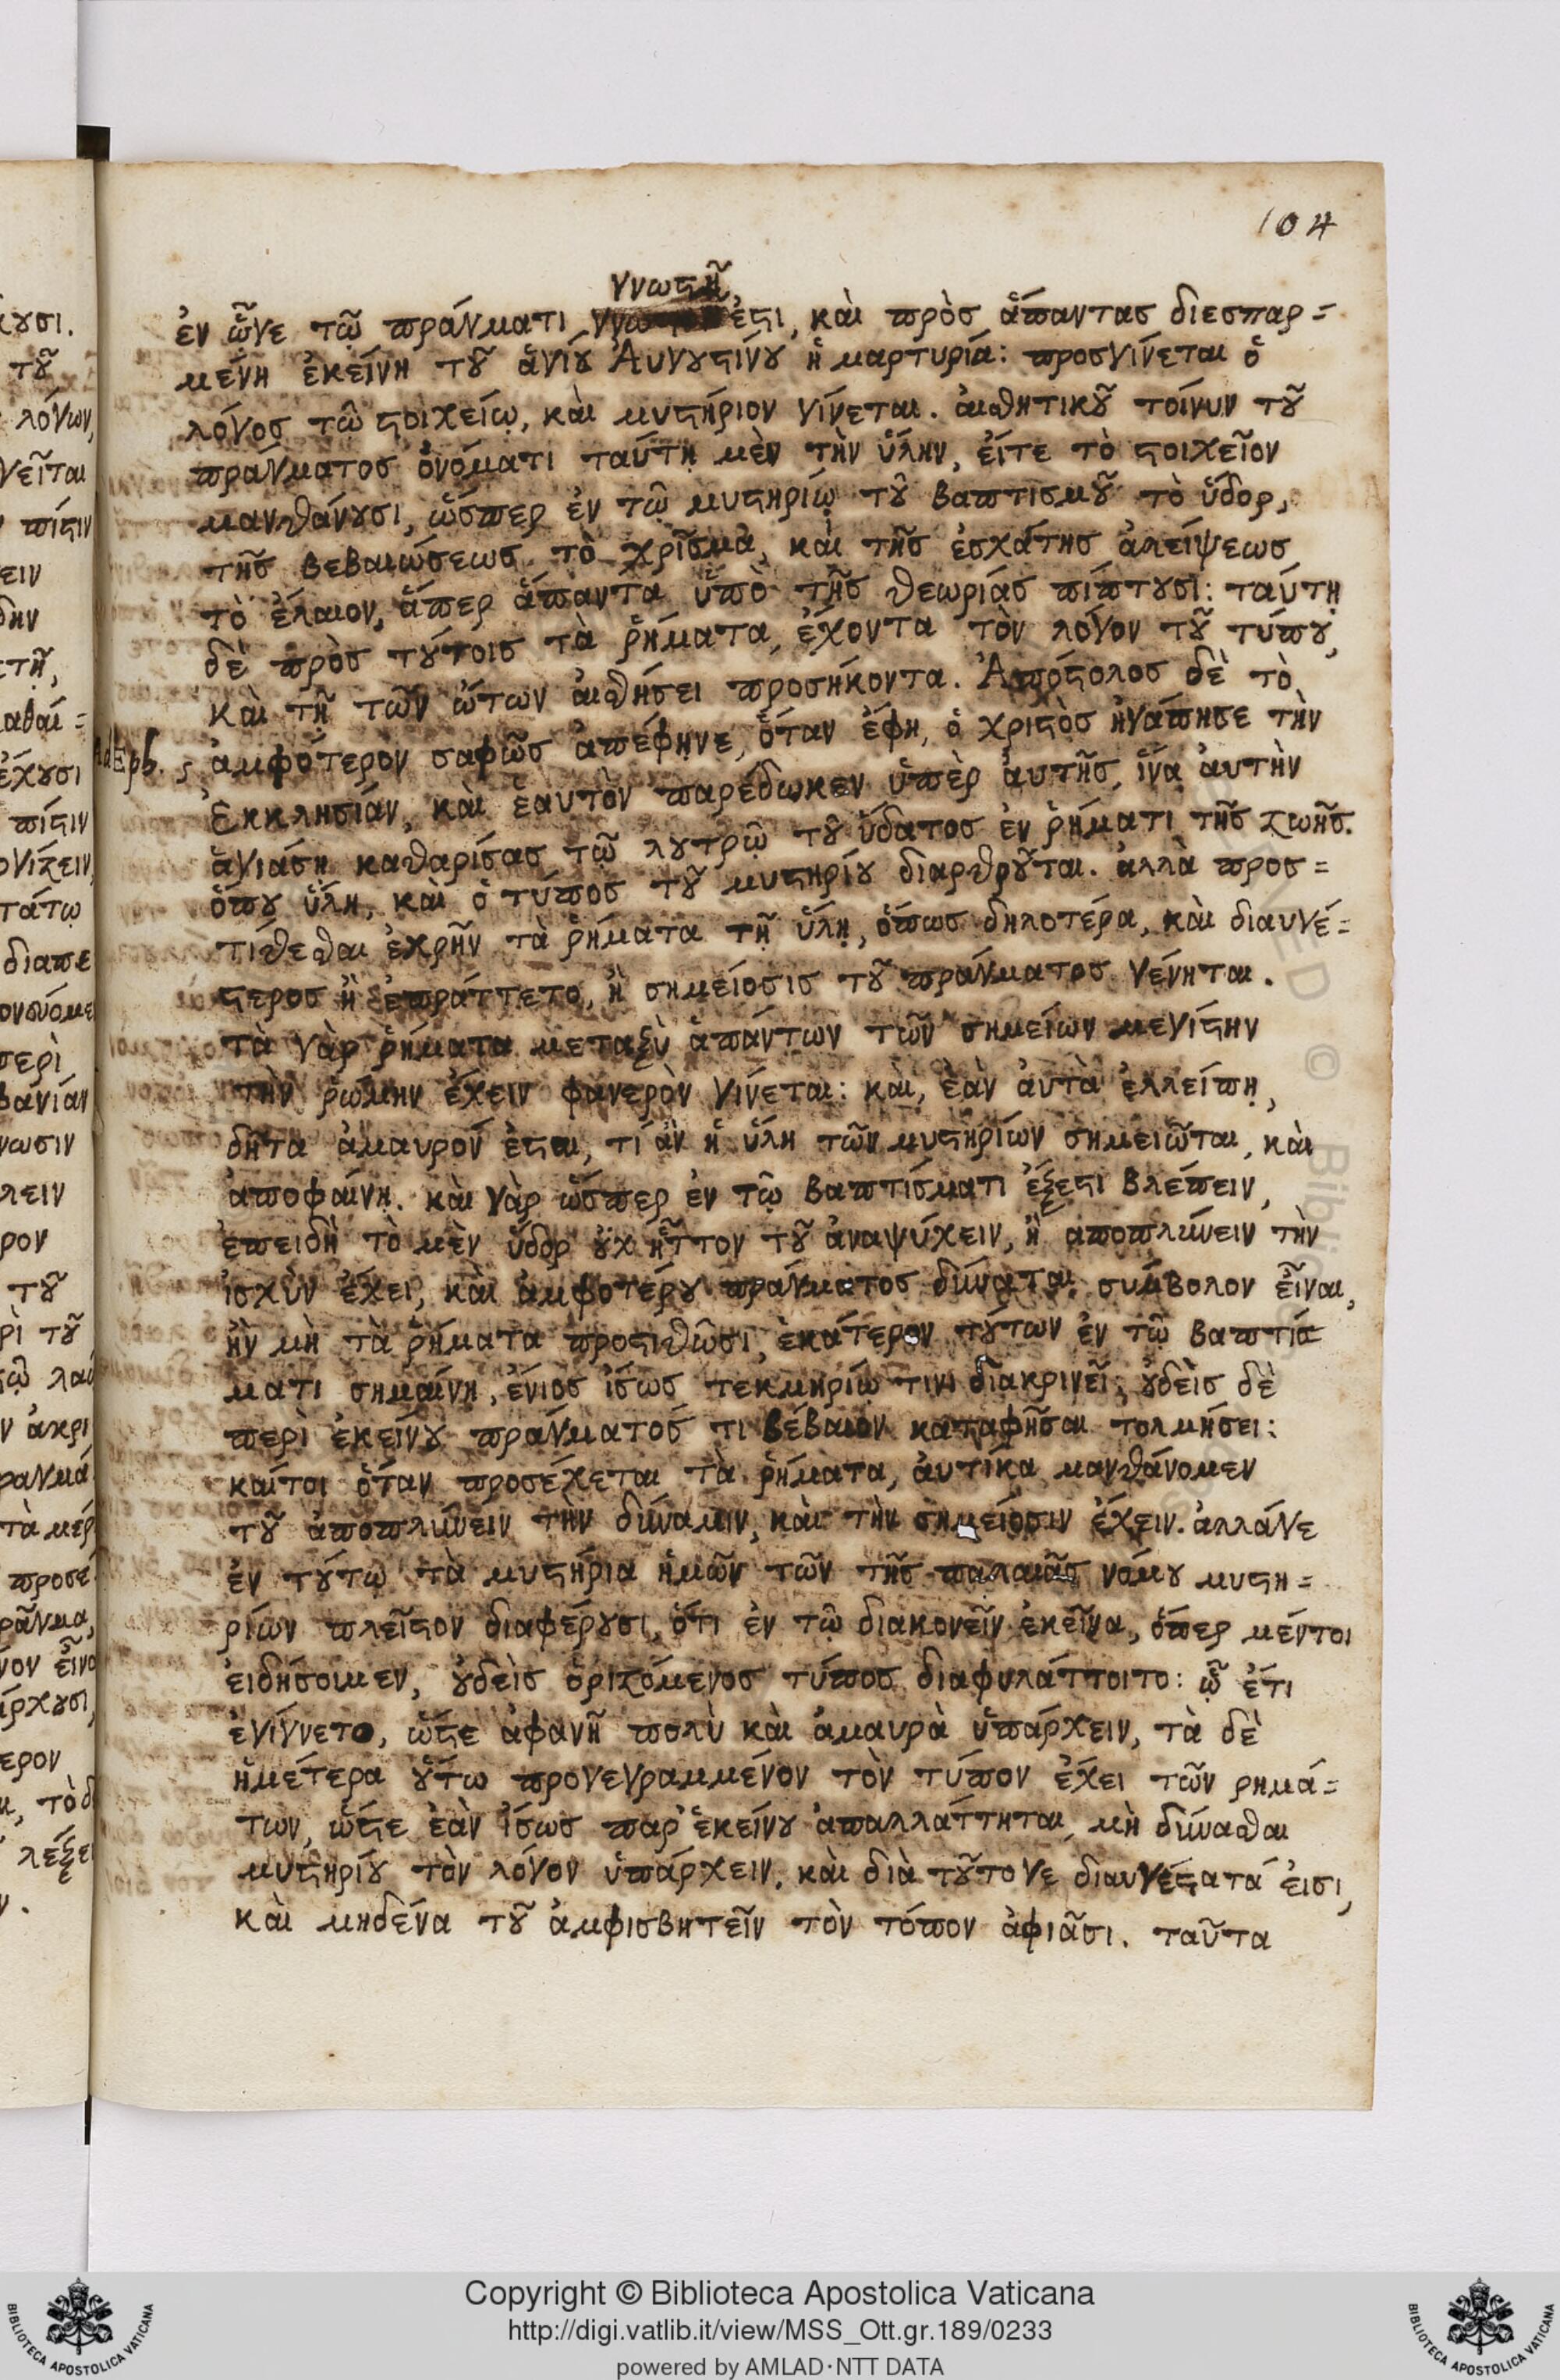 104
γνωστῆ,
ἐν ᾧγε τῷ πράγματι ἐστι, καὶ πρὸς ἅπαντας διεσπαρ=
μένη ἐκείνη τοῦ ἁγίου Αὐγουστίνου ἡ μαρτυρία: προσγίνεται ὁ
λόγος τῷ στοιχείῳ, καὶ μυστήριον γίνεται. αἰσθητικοῦ τοίνυν τοῦ
πράγματος ὀνόματι ταύτῃ μὲν τὴν ὕλην, εἴτε τὸ στοιχεῖον
μανθάνουσι, ὥσπερ ἐν τῷ μυστηρίῳ τοῦ βαπτισμοῦ τὸ ὕδορ,
τῆς βεβαιώσεως τὸ χρῖσμα, καὶ τῆς ἐσχάτης ἀλείψεως
τὸ ἔλαιον, ἅπερ ἅπαντα ὑπὸ τῆς θεωρίας πίπτουσι: ταύτῃ
δὲ πρὸς τούτοις τὰ ῥήματα, ἔχοντα τὸν λόγον τοῦ τύπου,
καὶ τῇ τῶν ὤτων αἰσθήσει προσήκοντα. Ἀπόστολος δὲ τὸ
Ad Eph. 5 ἀμφότερον σαφῶς ἀπέφηνε, ὅταν ἔφη, ὁ χριστὸς ἠγάπησε τὴν
Ἐκκλησίαν, καὶ ἑαυτὸν παρέδωκεν ὑπὲρ αὐτῆς, ἵνα αὐτὴν
ἁγιάσῃ καθαρίσας τῷ λουτρῷ τοῦ ὕδατος ἐν ῥήματι τῆς ζωῆς.
ὅπου ὕλη, καὶ ὁ τύπος τοῦ μυστηρίου διαρθροῦται. ἀλλὰ προσ=
τίθεσθαι ἐχρῆν τὰ ῥήματα τῇ ὕλῃ, ὅπως δηλοτέρα, καὶ διαυγέ=
στερος ἢ ἐπράττετο, ἡ σημείοσις τοῦ πράγματος γένηται.
τὰ γὰρ ῥήματα μεταξὺ ἁπάντων τῶν σημείων μεγίστην
τὴν ῥώμην ἔχειν φανερὸν γίνεται: καὶ, ἐὰν αὐτὰ ἐλλείπῃ,
δῆτα ἀμαυρόν ἔσται, τί ἀν ἡ ὕλη τῶν μυστηρίων σημειῶται, καὶ
ἀποφαίνῃ. καὶ γὰρ ὥσπερ ἐν τῷ βαπτίσματι ἔξεστι βλέπειν,
ἐπειδὴ τὸ μὲν ὕδορ οὐχ ἧττον τοῦ ἀναψύχειν, ἢ ἀποπλύνειν τὴν
ἰσχὺν ἔχει, καὶ ἀμφοτέρου πράγματος δύναται σύμβολον εἶναι,
ἢν μὴ τὰ ῥήματα προστιθῶσι, ἑκάτερον τούτων ἐν τῷ βαπτίσ
ματι σημαίνῃ, ἔνιος ἴσως τεκμηρίῳ τινι διακρινεῖ, οὐδεὶς δὲ
περὶ ἐκείνου πράγματός τι βέβαιον καταφῆσαι τολμήσει:
καίτοι ὅταν προσέχεται τὰ ῥήματα, αὐτίκα μανθάνομεν
τοῦ ἀποπλύνειν τὴν δύναμιν, καὶ τὴν σημείοσιν ἔχειν. ἀλλάγε
ἐν τούτῳ τὰ μυστήρια ἡμῶν τῶν τῆς παλαιᾶς νόμου μυστη=
ρίων πλεῖστον διαφέρουσι, ὅτι ἐν τῷ διακονεῖν ἐκεῖνα, ὅπερ μέντοι
εἰδήσοιμεν, οὐδεὶς ὁριζόμενος τύπος διαφυλάττοιτο: ᾧ ἔτι
ἐγίγνετο, ὥστε ἀφανῆ πολὺ καὶ ἀμαυρὰ ὑπάρχειν, τὰ δὲ
ἡμέτερα οὕτω προγεγραμμένον τὸν τύπον ἔχει τῶν ρημά=
των, ὥστε ἐὰν ἴσως παρ' ἐκείνου ἀπαλλάττηται, μὴ δύνασθαι
μυστηρίου τὸν λόγον ὑπάρχειν. καὶ διὰ τοῦτο γε διαυγέστατά εἰσι,
καὶ μηδένα τοῦ ἀμφισβητεῖν τὸν τόπον ἀφιᾶσι. ταῦτα
Copyright © Biblioteca Apostolica Vaticana
http://digi.vatlib.it/view/MSS_Ott.gr.189/0233
powered by AMLAD·NTT DATA